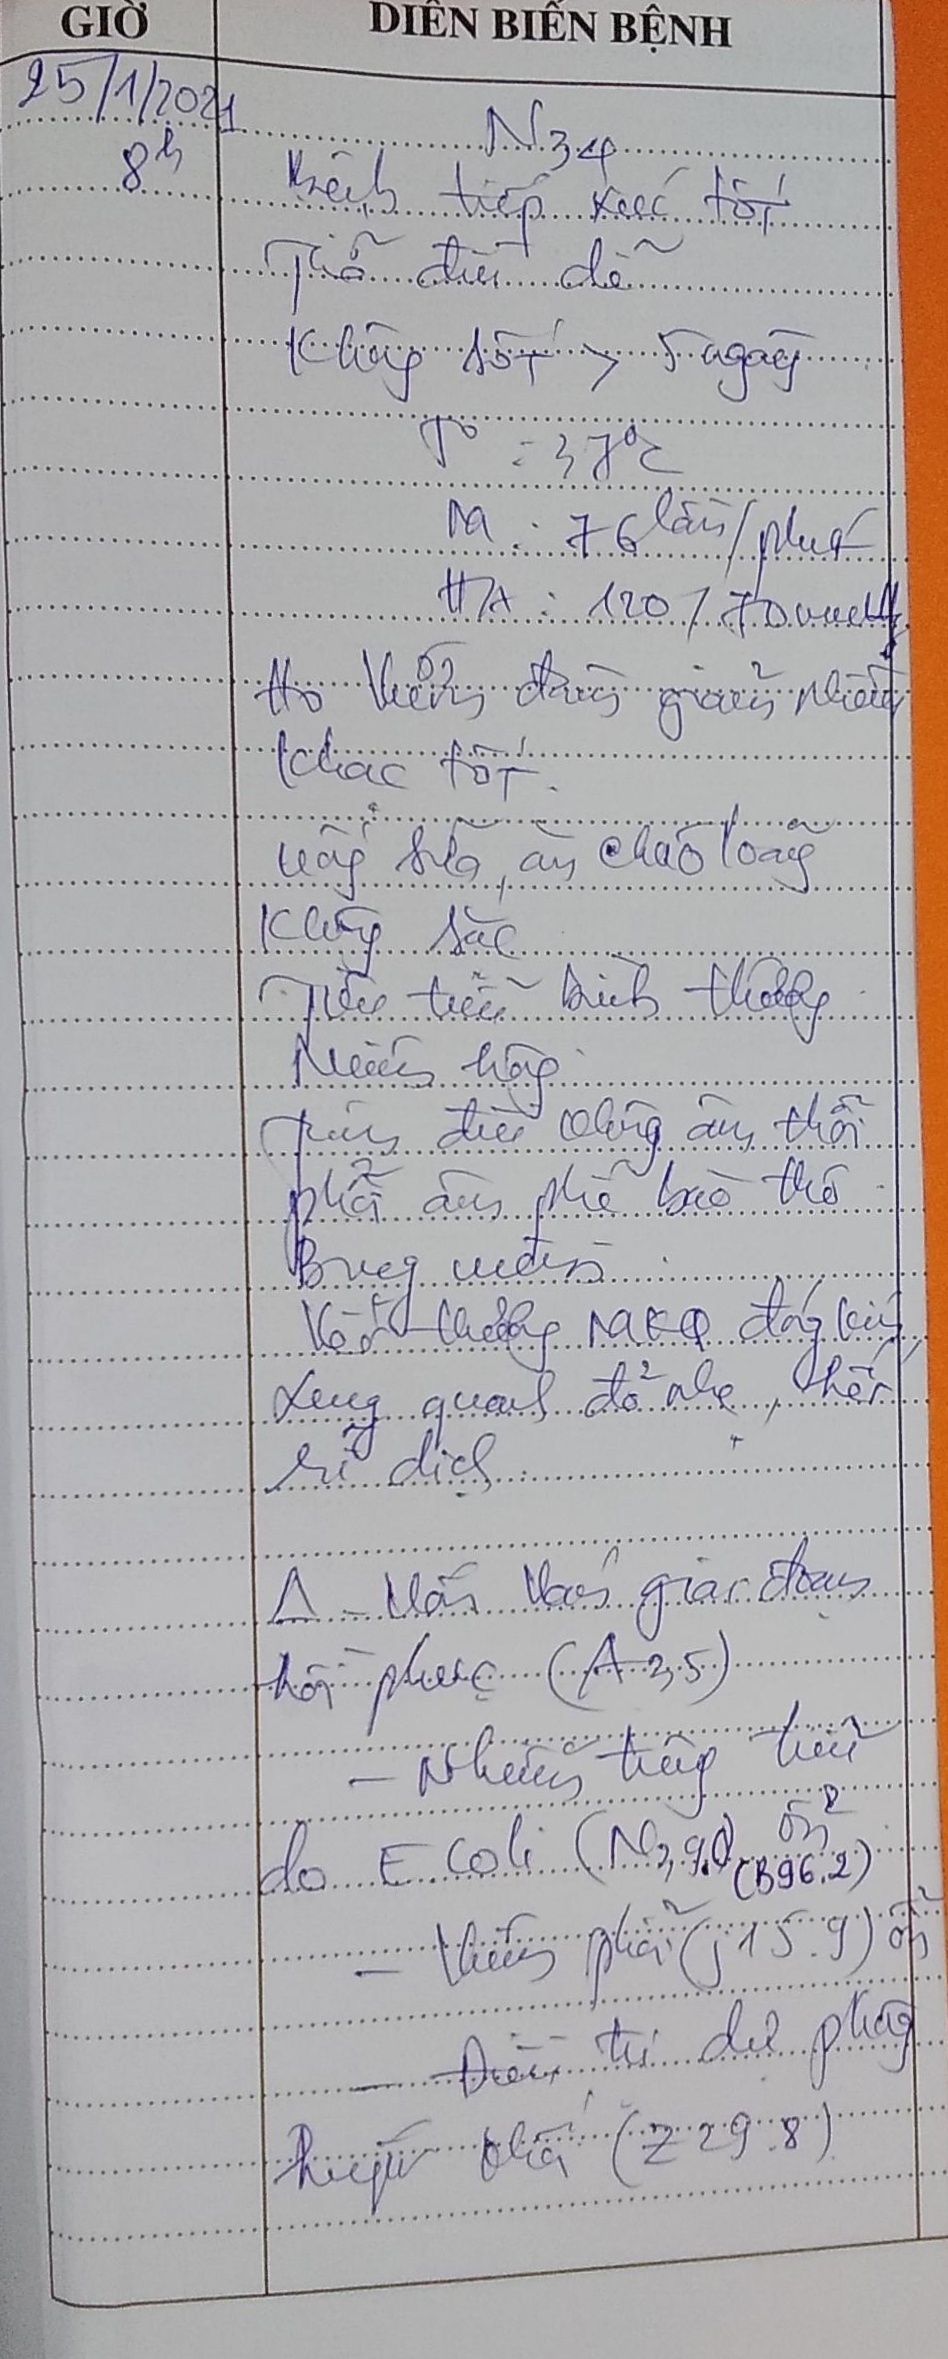 GIỜ DIỄN BIẾN BỆNH
25/1/2021
N34
8h Bệnh tiếp xúc tốt
Thở đều dễ
Không sốt > 5 ngày
T° : 37°C
M : 76 lần/phút
HA : 120/70 mmHg
Ho đàm giảm nhiều
khạc tốt.
uống sữa, ăn cháo loãng
Không sặc
Tiêu tiểu bình thường
Niêm hồng
Tim đều không âm thổi
phổi âm phế bào thô
Bụng mềm
Vết thương MKQ đóng kín,
xung quanh đỏ nhẹ, hết
rỉ dịch
Δ - Uốn ván giai đoạn
hồi phục (A35)
- Nhiễm trùng tiểu
do E.Coli (N39.0) ổn
(B96.2)
- Viêm phổi (J15.9) ổn
- Điều trị dự phòng
huyết khối (Z29.8)